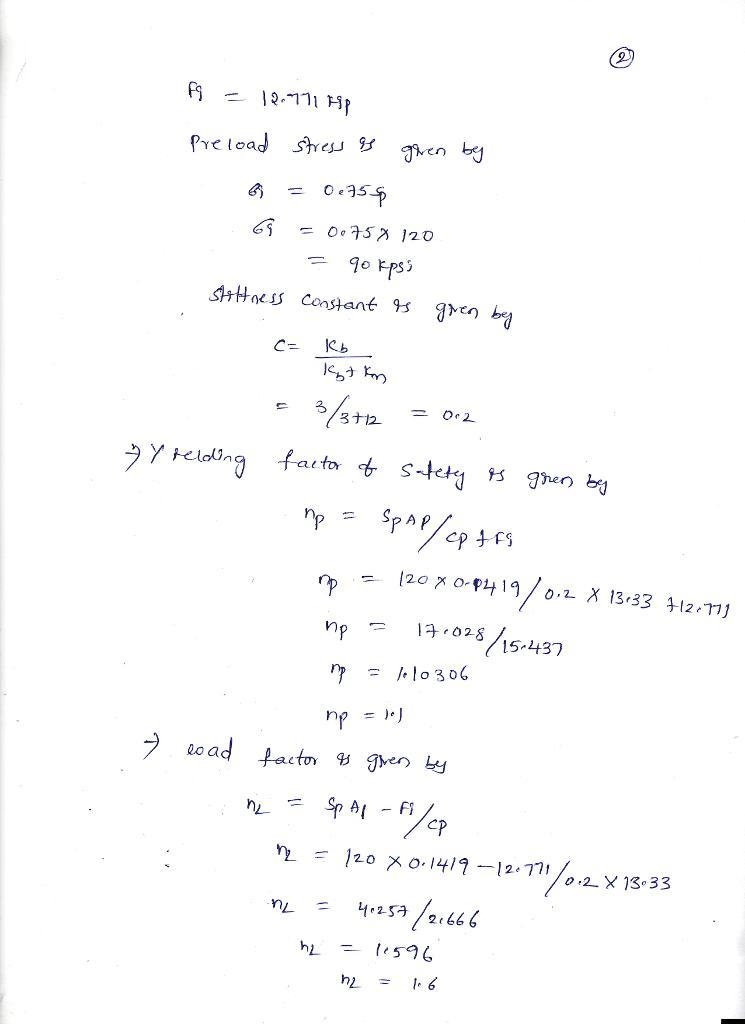 2
Fi = 12.771 kip
Preload stress is given by
σi = 0.75 Sp
σi = 0.75 x 120
= 90 kpsi
Stiffness constant is given by
C = Kb
Kb + Km
= 3/3+12 = 0.2
→ Yielding factor of Safety is given by
np = Sp Ap / CP + Fi
np = 120 x 0.1419 / 0.2 x 13.33 + 12.771
np = 17.028 / 15.437
np = 1.10306
np = 1.1
→ Load factor is given by
nL = Sp At - Fi / CP
nL = 120 x 0.1419 - 12.771 / 0.2 x 13.33
nL = 4.257 / 2.666
nL = 1.596
nL = 1.6